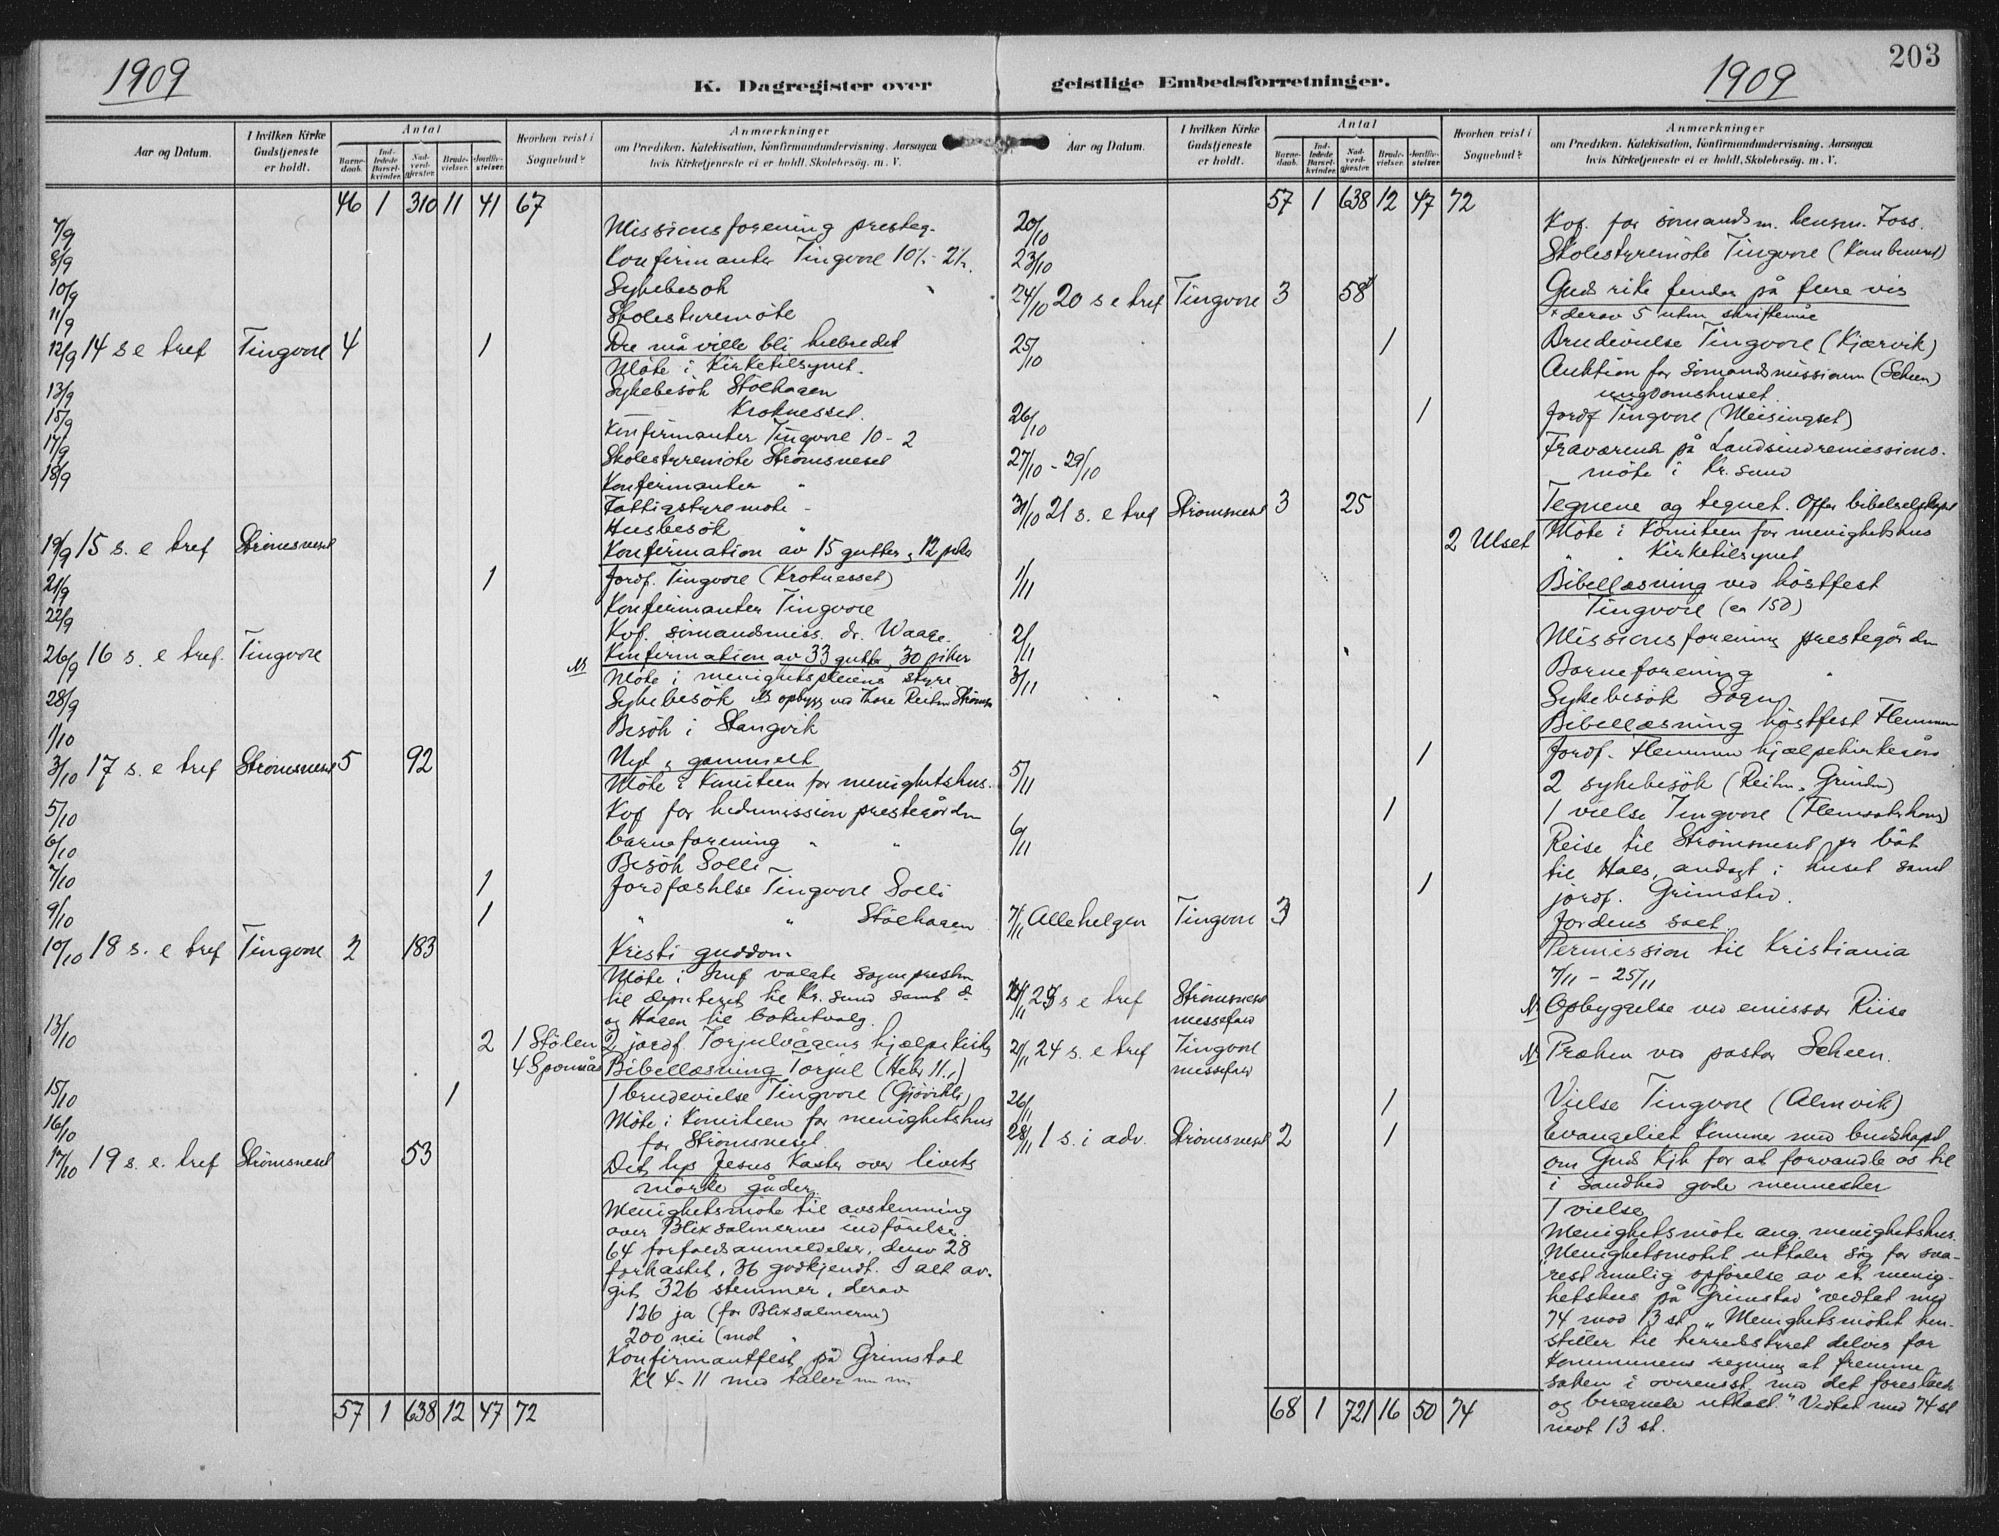 1909
K. Dagregister over
Aar og Datum.
I hvilken Kirke Gudstjeneste er holdt.
Antal
Barnedaab.
Indledede Barselkvinder.
Nadverdgjæster.
Brudevielser.
Jordfæstelser.
Hvorhen reist i Sognebud?
Anmærkninger
om Prædiken, Katekisation, Konfirmandundervisning, Aarsagen
hvis Kirketjeneste ei er holdt, Skolebesøg, m. V.
46 1 310 11 41 67
7/9 Missionsforening presteg.
8/9 Konfirmanter Tingvoll 10½ - 2½
10/9 Sykebesök
11/9 Skolestyremöte
12/9 14 s e tref Tingvoll 4 1 Du må ville bli helbredet
Möte i Kirketilsynet.
13/9 Sykebesök Stölhagen
15/9 Kroknesset.
17/9 Konfirmanter Tingvoll 10 - 2
18/9 Skolestyremöte Strömsneset
Konfirmanter "
Fattigstyremöte "
Husbesök "
19/9 15 s. e tref Strömsneset Konfirmation av 15 gutter, 12 piker
21/9 1 Jordf. Tingvoll (Kroknesset)
22/9 Konfirmanter Tingvoll
Kvf. sömandsmiss. dr. Waage.
26/9 16 s. e tref. Tingvoll Konfirmation av 33 gutter, 30 piker
NB Möte i menighetspleiens styre
28/9 Sykebesök NB opbygg. ved Tore Reiten Strömsn
1/10 Besök i Stangvik
3/10 17 s. e tref Strömsneset 5 92 Nyt og gammelt
Möte i Komiteen for menighetshus.
5/10 Kvf for hedmission prestegården
6/10 barneforening " "
7/10 Besök Solli
1 Jordfæstelse Tingvoll Solli
9/10 1 " " Stölhagen
10/10 18 s. e tref Tingvoll 2 183 Kristi guddom.
Möte i Inf valgte sognepresten
til deputeret til Kr. sund samt d°
og Hagen til bokutvalg.
13/10 2 1 Stölen 2 jordf Torjulvågens hjælpekirke
4 Sponnås Bibellæsning Torjul (Hebr 11.1)
15/10 1 1 brudevielse Tingvoll (Gjövikli)
16/10 Möte i Komiteen for menighetshus
for Strömsneset.
17/10 19 s. e. tref Strömsneset 53 Det lys Jesus kaster over livets
mörke gåder
Menighetsmöte til avstemning
over Blix salmernes indförelse.
64 forfaldsanmeldelser, derav 28
forkastet, 36 godkjendt. I alt av-
git 326 stemmer, derav
126 ja (for Blixsalmerne)
200 nei (mot " )
Konfirmantfest på Grimstad
Kl 4 - 11 med taler m. m.
57 1 638 12 47 72
203
1909
geistlige Embedsforretninger.
Aar og Datum.
I hvilken Kirke Gudstjeneste er holdt.
Antal
Barnedaab.
Indledede Barselkvinder.
Nadverdgjæster.
Brudevielser.
Jordfæstelser.
Hvorhen reist i Sognebud?
Anmærkninger
om Prædiken, Katekisation, Konfirmandundervisning, Aarsagen
hvis Kirketjeneste ei er holdt, Skolebesög, m. V.
57 1 638 12 47 72
20/10 Kvf. for sömandsm. lensm. Foss.
23/10 Skolestyremöte Tingvoll
24/10 20 s e tref Tingvoll 3 58* Guds rike finder på flere vis
* derav 5 uten skriftemål
25/10 1 Brudevielse Tingvoll (Kjærvik)
Auktion for Sömandsmissionen (Scheen)
ungdomshuset.
26/10 1 Jordf Tingvoll (Meisingset)
27/10 - 29/10 Fraværende på Landsindremissions-
möte i Kr. sund
31/10 21 s. e tref Strömsneset 3 25 Tegnene og tegnet. Offer bibelselskapet
2 Ulset Möte i Komiteen for menighetshus
" " Kirketilsynet
1/11 Bibellæsning ved höstfest
Tingvoll (ca 150)
2/11 Missionsforening prestegården
Barneforening "
3/11 Sykebesök Sogn
Bibellæsning höstfest Flemmen
1 Jordf. Flemmen hjælpekirkegård
5/11 2 sykebesök (Reiten, Grinden)
1 1 vielse Tingvoll (Flemsæterhaug)
6/11 Reise til Strömsneset pr båt
til Hals, andagt i huset samt
1 jordf. Grimstad.
7/11 Allehelgen Tingvoll 3 Jordens salt
Permission til Kristiania
7/11 - 25/11
14/11 23 s e tref Strömsneset messefald NB Opbyggelse ved emissær Riise
21/11 24 s. e tref Tingvoll messefald NB Præken ved pastor Scheen.
26/11 1 Vielse Tingvoll (Almvik)
28/11 1 s. i adv. Strömsneset 2 1 Evangeliet kommer med budskapet
om Guds kjh for at forvandle os til
i Sandhed gode mennesker
1 vielse
Menighetsmöte ang. menighetshus.
"Menighetsmötet uttaler sig for sna-
rest mulig opförelse av et menig-
hetshus på Grimstad" vedtat med
74 mod 13 st. "Menighetsmötet hen-
stiller til herredstyret delvis for
kommunens regning at fremme
saken i overensst. med det foreslåede
og beregnede utkast." Vedtat med 74 st
mot 13 st.
68 1 721 16 50 74